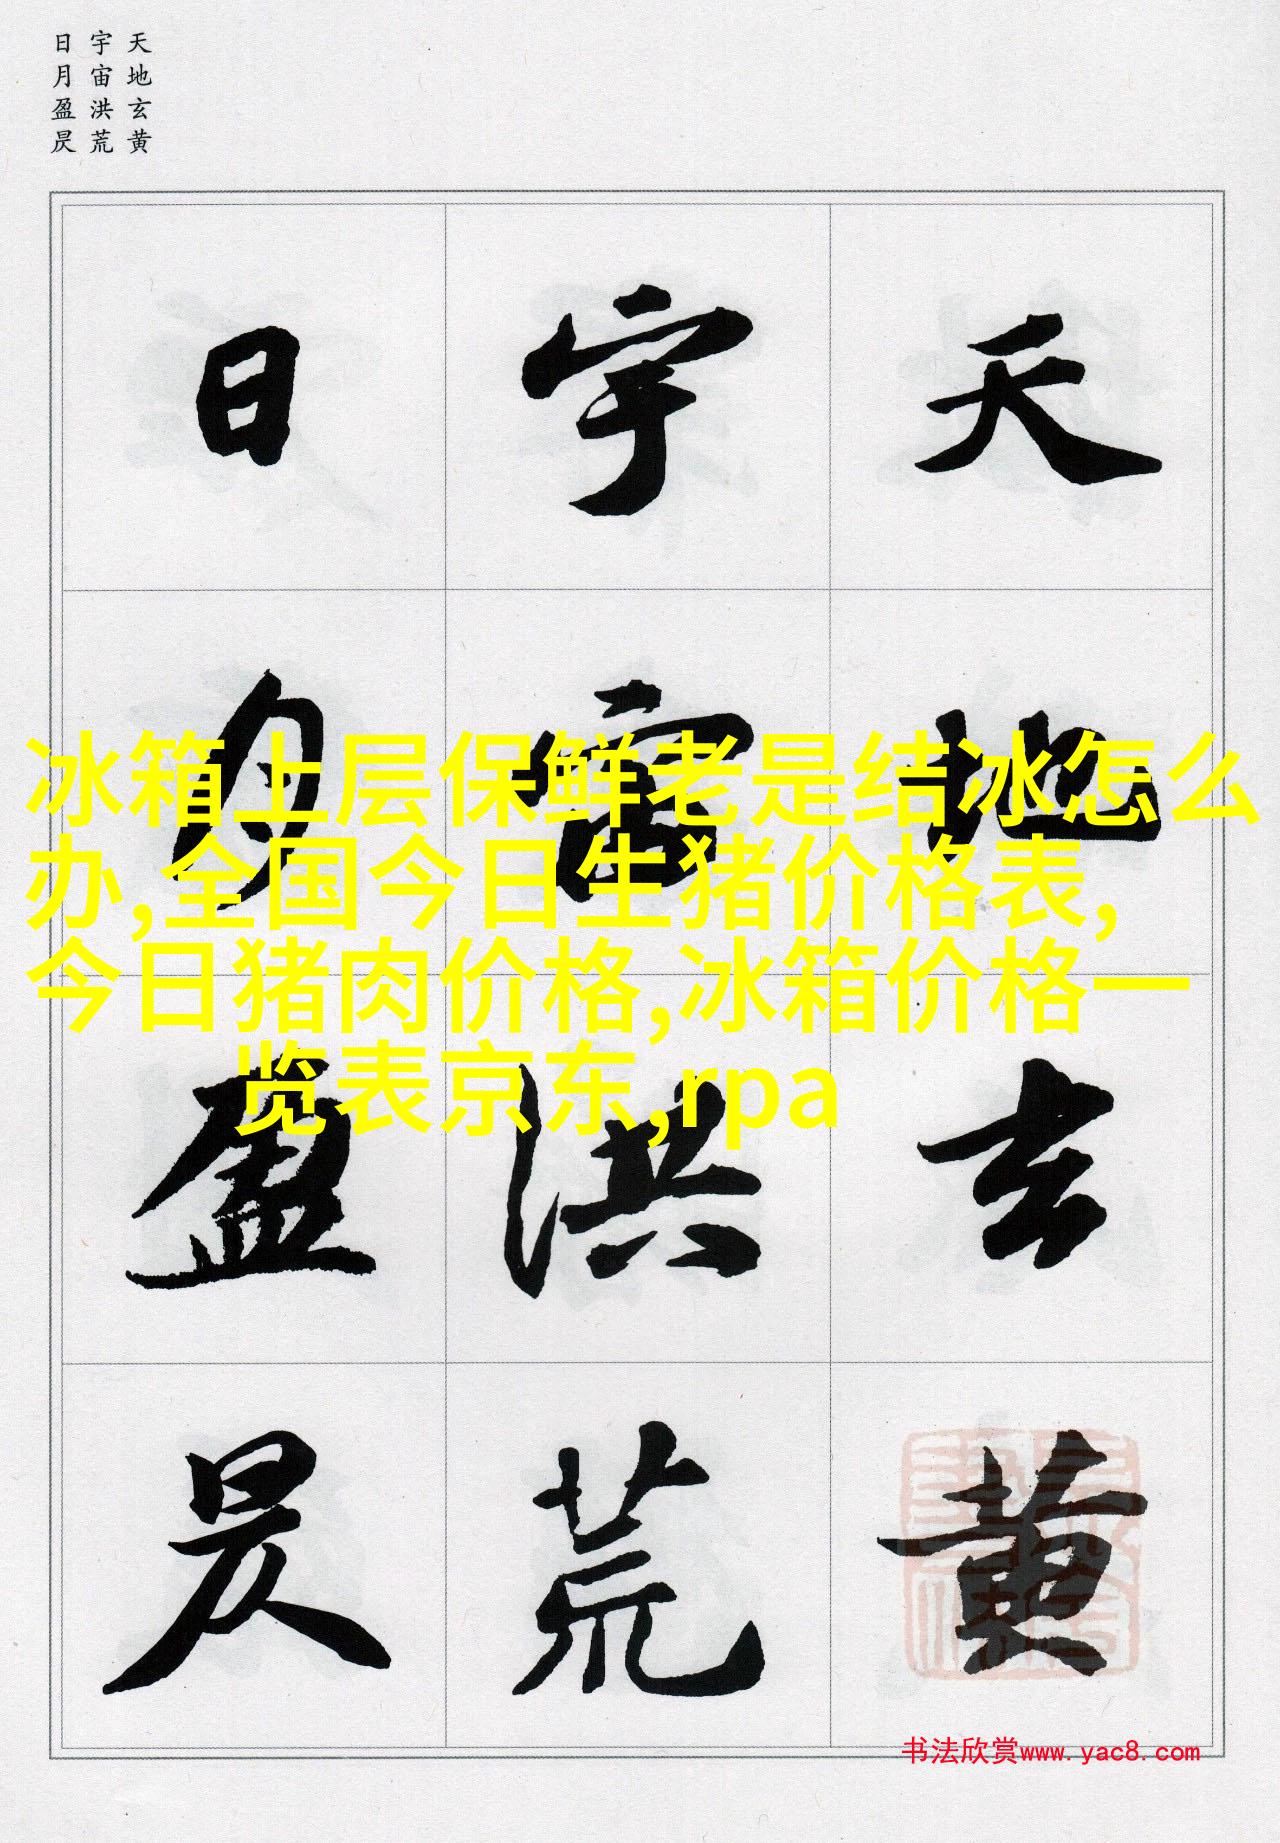 天地玄黄
宇宙洪荒
日月盈昃
天地玄黄
宇宙洪荒
日月盈昃
冰箱上层保鲜老是结冰怎么
办,全国今日生猪价格表,
今日猪肉价格,冰箱价格一
览表京东,rpa
书法欣赏www.yac8.com